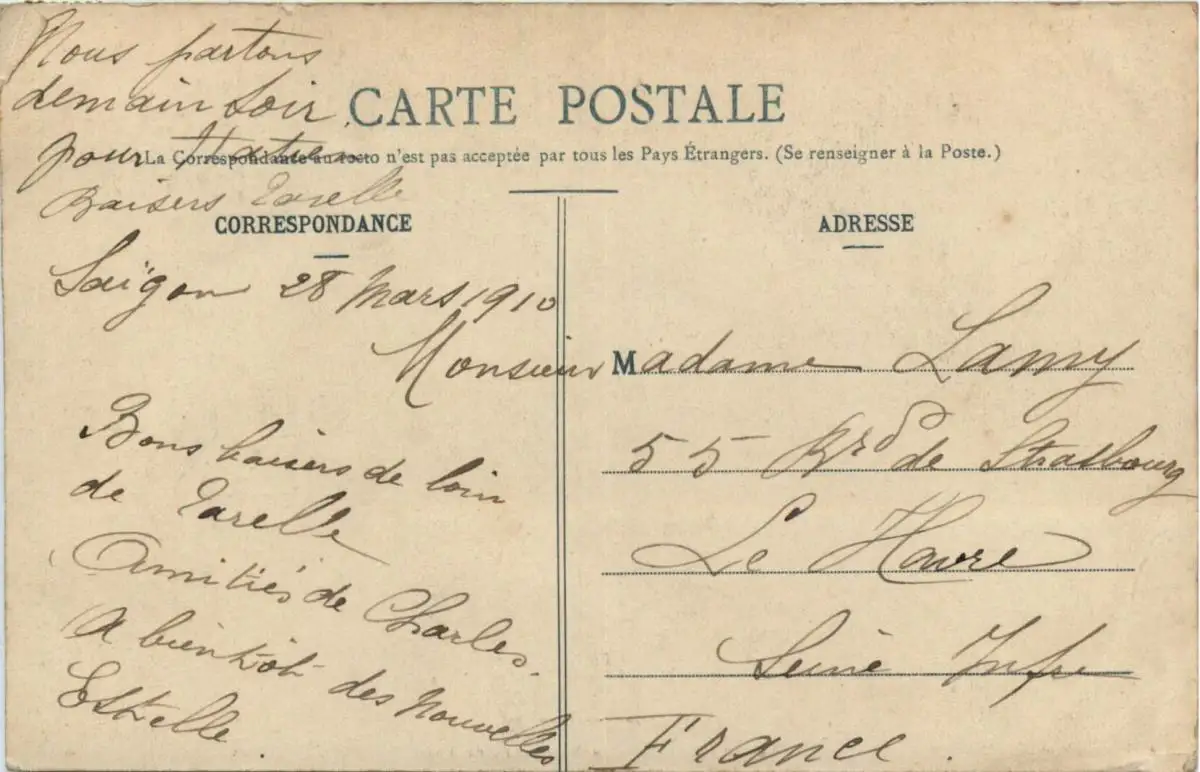 Nous partons
demain soir
pour Hatien
Baisers Tarelle
CARTE POSTALE
La Correspondance au recto n'est pas acceptée par tous les Pays Étrangers. (Se renseigner à la Poste.)
CORRESPONDANCE
Saïgon 28 Mars 1910
Bons baisers de loin
de Tarelle
Amitiés de Charles.
A bientôt des nouvelles
Esthelle.
ADRESSE
Monsieur Madame Lamy
55 Brd de Strasbourg
Le Havre
Seine Infre
France.